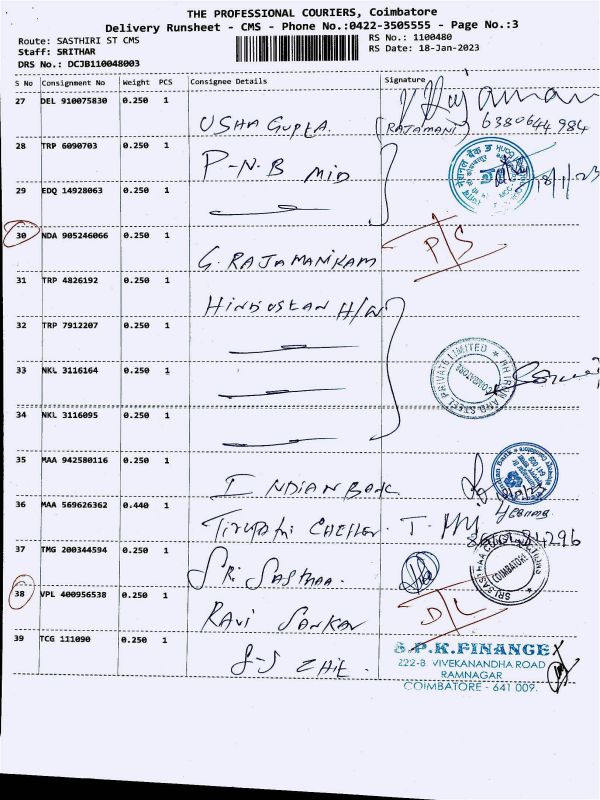 THE PROFESSIONAL COURIERS, Coimbatore
Delivery Runsheet - CMS - Phone No.:0422-3505555 - Page No.:3
Route: SASTHIRI ST CMS
RS No.: 1100480
Staff: SRITHAR
RS Date: 18-Jan-2023
DRS No.: DCJB110048003
S No Consignment No Weight PCS Consignee Details Signature
27 DEL 910075830 0.250 1 USHA GUPTA (RAJAMANI) 6380644984
28 TRP 6090703 0.250 1 P-N-B MID
29 EDQ 14928063 0.250 1 18/1/23
30 NDA 905246066 0.250 1 G. RAJAMANIKAM P/S
31 TRP 4826192 0.250 1 HINDUSTAN H/W
32 TRP 7912207 0.250 1
33 NKL 3116164 0.250 1
34 NKL 3116095 0.250 1
35 MAA 942580116 0.250 1 INDIAN BANK
36 MAA 569626362 0.440 1 TIRUPATHI
37 TMG 200344594 0.250 1 SRI SASTHAA.
38 VPL 400956538 0.250 1 RAVI SANKAR D/L
39 TCG 111090 0.250 1
S.P.K.FINANCE
222-B. VIVEKANANDHA ROAD
RAMNAGAR
COIMBATORE - 641 009.
STEEL PRIVATE LIMITED
COIMBATORE
Indian Bank
SRI SASTHAA
COIMBATORE